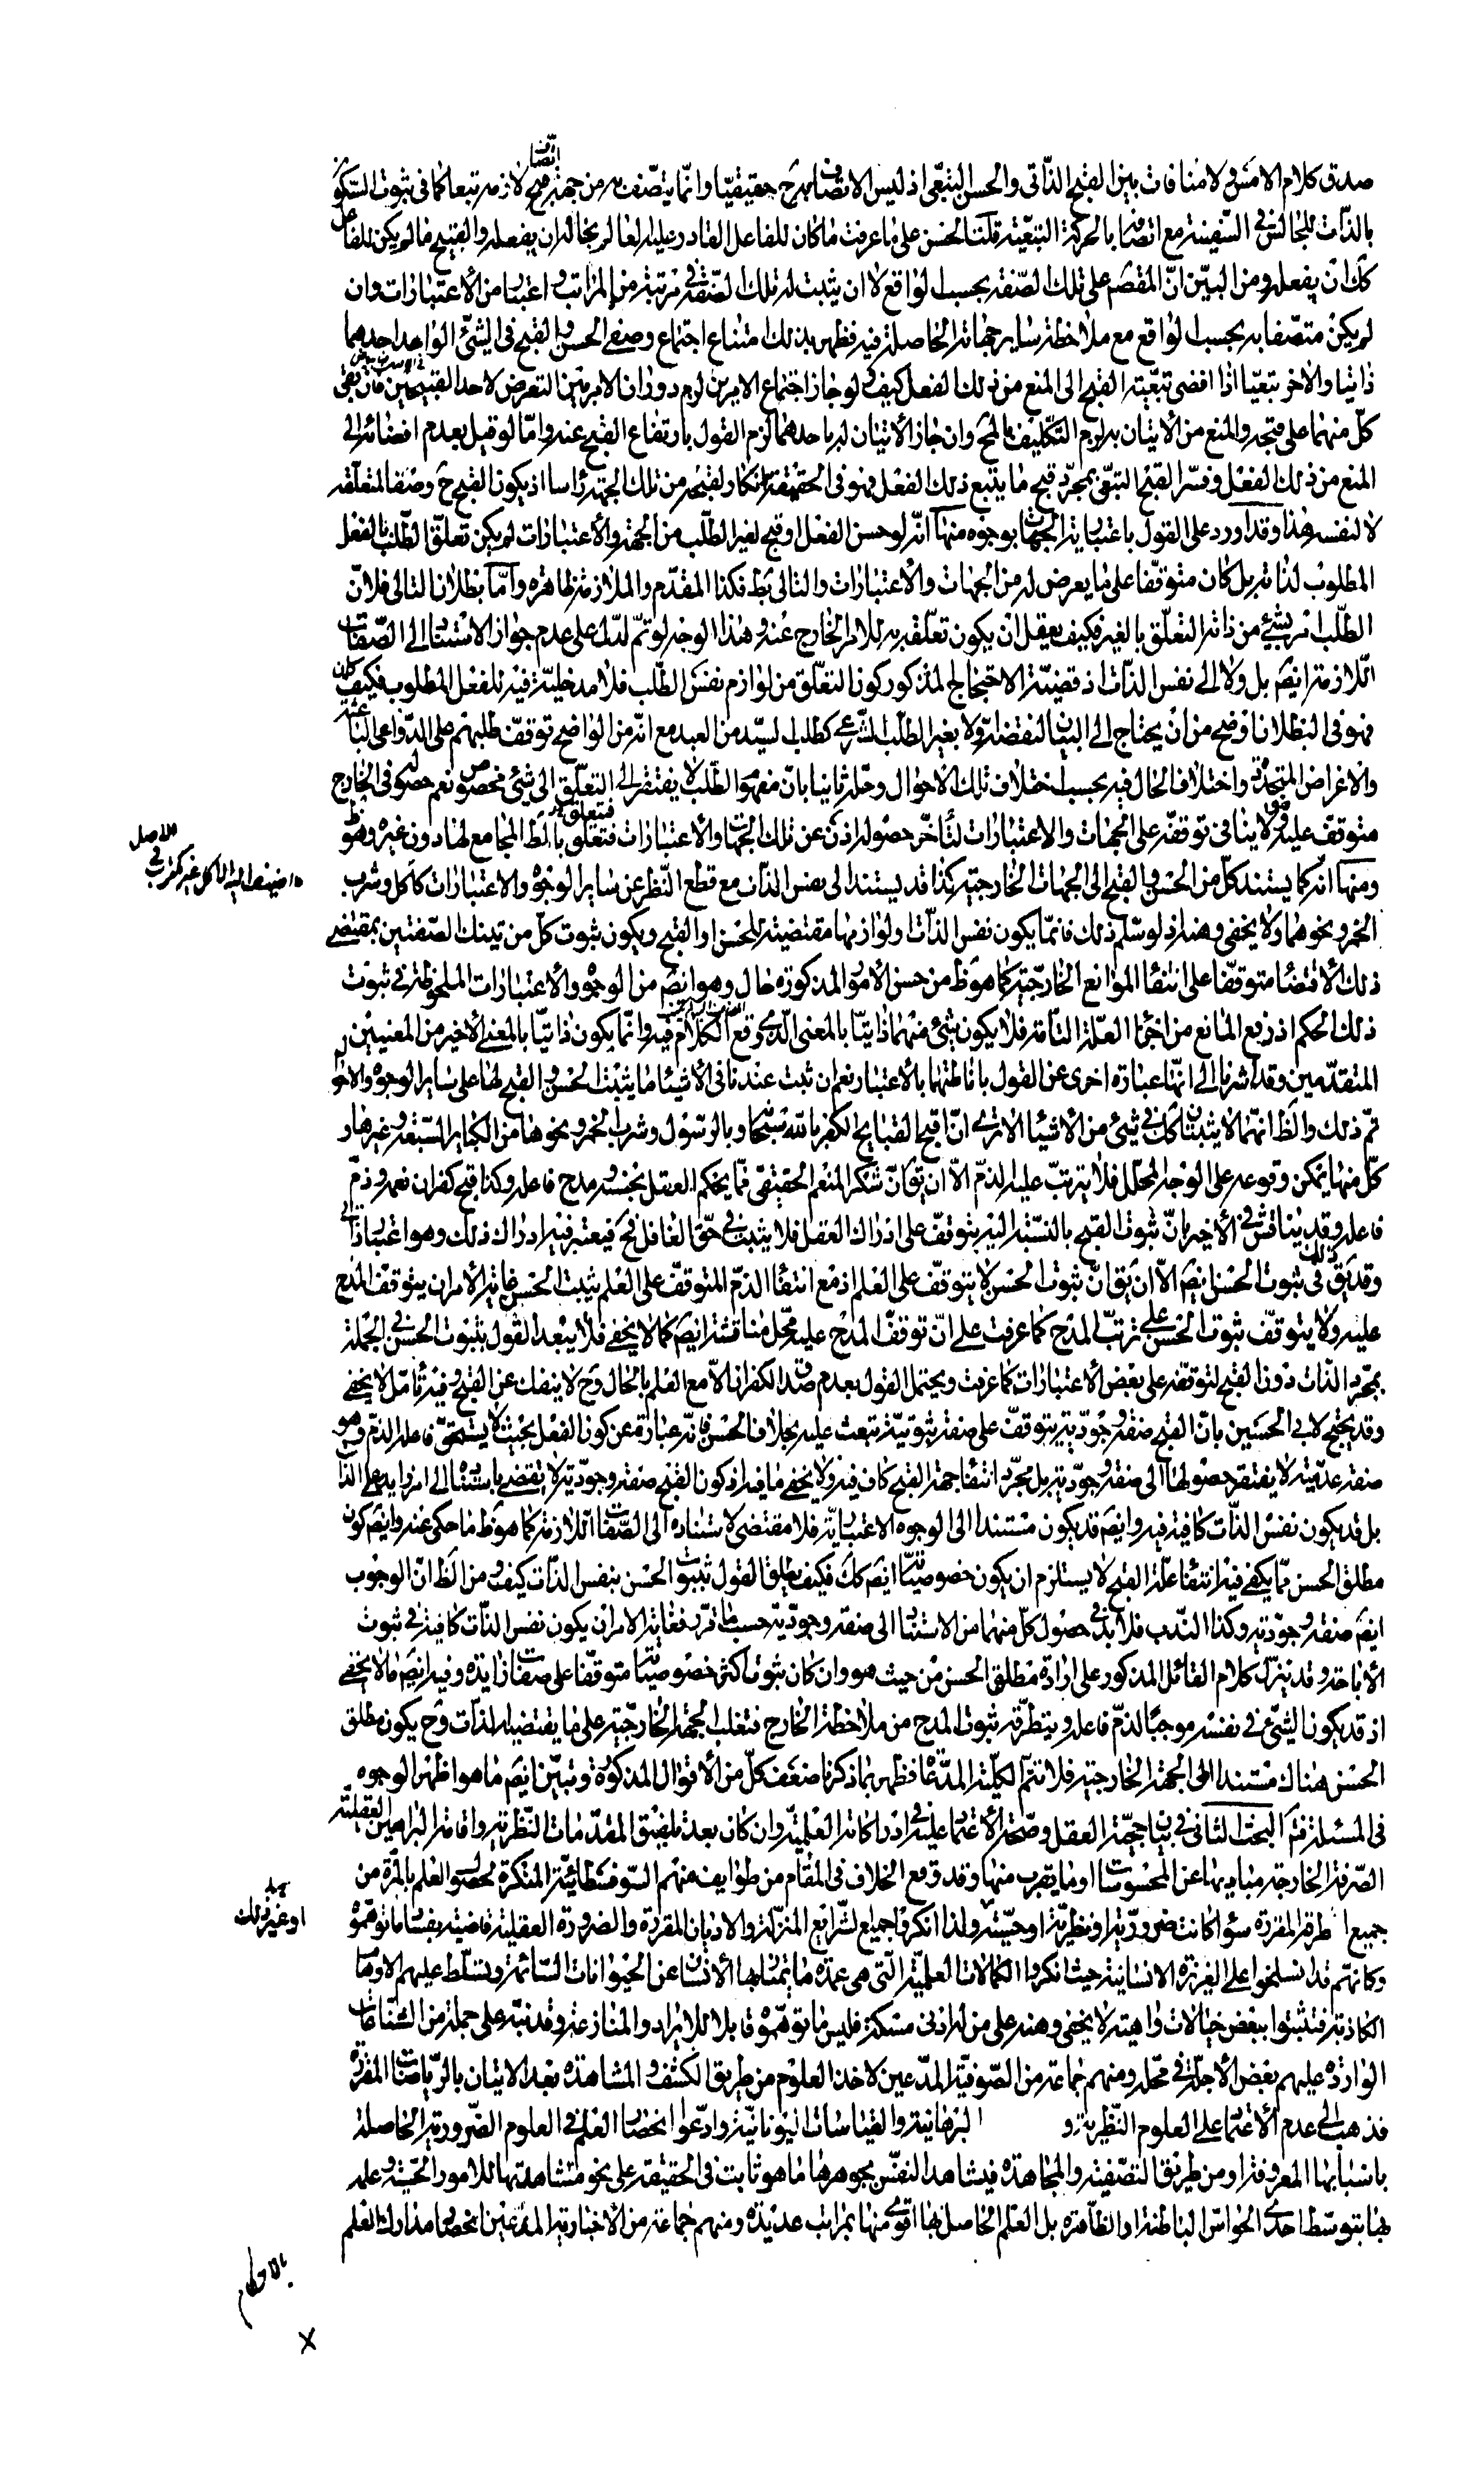 صدق كلام الامس ولا منافات بين القبح الذّاتى والحسن التبعّى اذ ليس الاتّصاف به ح حقيقيّا وانّما يتّصف به من جهة قبح لازمه تبعا كما فى ثبوت السّكون
بالذّات للجالس فى السّفينة مع اتصافه بالحركة التبعيّة قلنا الحسن على ما عرفت ما كان للفاعل القادر عليه العالم بحاله ان يفعله والقبيح ما لم يكن للفاعل
كك ان يفعله ومن البيّن انّ المقسم على تلك الصّفة بحسب الواقع لا ان يثبت له تلك الصّفة فى مرتبة من المراتب واعتبار من الأعتبارات وان
لم يكن متّصفا به بحسب الواقع مع ملاحظة ساير جهاته الحاصلة فيه فظهر بذلك امتناع اجتماع وصفى الحسن والقبح فى الشئ الواحد احدهما
ذاتيا والاخر تبعيّا اذا افضى تبعيّته القبح الى المنع من ذلك الفعل كيف ولو جاز اجتماع الامرين لزم دوران الامر بين التعرض لاحد القبيحين فان بقى
كلّ منهما على قبحه والمنع من الأتيان به لزم التّكليف بالمح وان جاز الأتيان له باحدهما لزم القول بارتفاع القبح عنه وامّا لو قيل بعدم افضائه الى
المنع من ذلك الفعل وفسّر القبح التبعّى بمجرّد قبح ما يتبع ذلك الفعل فهو فى الحقيقة انكار لقبحه من تلك الجهة راسا اذ يكون القبح ح وصفا لمتعلّقه
لا لنفسه هذا وقد اورد على القول باعتباريّة الجهات بوجوه منها انّه لو حسن الفعل او قبح لغير الطّلب من الجهة والأعتبارات لم يكن تعلّق الطّلب بالفعل
المطلوب لذاته بل كان متوقّفا على ما يعرض له من الجهات والأعتبارات والتالى بط فكذا المقدّم والملازمة ظاهرة وامّا بطلان التالى فلانّ
الطّلب امر يشئ من ذاته التعلّق بالغير فكيف يعقل ان يكون تعلّقه به للامر الخارج عنه وهذا الوجه لو تمّ لدلّ على عدم جواز الاستناد الى الصّفات
اللازمة ايضم بل ولا الى نفس الذّات اذ قضيّة الاحتجاج المذكور كون التعلّق من لوازم نفس الطّلب فلا مدخليّة فيه للفعل المطلوب فكيف كان
فهو فى البطلان اوضح من ان يحتاج الى البيان لنقضه اوّلا بغير الطّلب الشّرعى كطلب السيّد من العبد مع انّه من الواضح توقّف طلبهم على الدّواعى الباعثة
والأغراض المتجدّدة واختلاف الحال فيه بحسب اختلاف تلك الاحوال وحلّه ثانيا بانّ مفهوم الطّلب لا يفتقر الى التعلّق الى شئ مخصوص نعم حصوله فى الخارج
متوقف عليه ولا ينافى توقفه على الجهات والاعتبارات لتأخّر حصوله اذن عن تلك الجهات والأعتبارات فتعلّق بالط الجامع لها دون غيره وهو ظ
ومنها انّه كما يستند كلّ من الحسن والقبح الى الجهات الخارجيّة كذا قد يستند الى نفس الذّات مع قطع النّظر عن ساير الوجوه والاعتبارات كأكل وشرب
الخمر ونحوهما ولا يخفى وهنه اذ لو سلّم ذلك فانّما يكون نفس الذّات او لوازمها مقتضية للحسن او القبح ويكون ثبوت كلّ من تينك الصّفتين بمقتضى
ذلك الأقتضاء متوقّفا على انتفاء الموانع الخارجيّة كما هو ظ من حسن الأمور المذكورة حال وهو ايضم من الوجوه والأعتبارات الملحوظة فى ثبوت
ذلك الحكم اذ رفع المانع من اجزاء العلّة التّامة فلا يكون شئ منهما ذاتيّا بالمعنى الّذى وقع الكلام فيه وانّما يكون ذاتيّا بالمعنى الأخير من المعنيين
المتقدّمين وقد اشرنا الى انّها عبارة اخرى عن القول باناطتهما بالأعتبار نعم ان ثبت عندنا فى الأشياء ما يثبت الحسن والقبح لها على ساير الوجوه والاحوال
تمّ ذلك والظ انّهما لا يثبتان كك فى شئ من الأشياء الا ترى انّ اقبح القبايح الكفر بالله سبحانه وبالرّسول وشرب الخمر ونحوها من الكباير السّبعة وغيرها و
كلّ منها يمكن وقوعه على الوجه المحلّل فلا يترتّب عليه الذمّ الّا ان يق انّ شكر المنعم الحقيقى ممّا يحكم العقل بحسنه ومدح فاعله وكذا قبح كفران نعمه وذمّ
فاعله وقد يناقش فى الأخير بانّ ثبوت القبح بالنّسبة اليه يتوقّف على ادراك العقل فلا يثبت فى حقّ الغافل فح فيعتبر فيه ادراك ذلك وهو اعتبار زائد
وقد يق ذلك فى ثبوت الحسن ايضم الّا ان يق انّ ثبوت الحسن لا يتوقّف على العلم اذ مع انتفاء الذمّ المتوقّف على العلم يثبت الحسن غاية الأمر ان يتوقّف المدح
عليه ولا يتوقّف ثبوت الحسن على ترتّب المدح كما عرفت على انّ توقّف المدح عليه محلّ مناقشة ايضم كما لا يخفى فلا يبعد القول بثبوت الحسن فى الجملة
بمجرّد الذّات دون القبح لتوقّفه على بعض الأعتبارات كما عرفت ويحتمل القول بعدم صدق الكفران الّا مع العلم بالحال وح لا ينفك عن القبح وفيه تأمّل لا يخفى
وقد يحتجّ لابى الحسين بانّ القبح صفة وجوديّة يتوقّف على صفة ثبوتيّة تبعث عليه بخلاف الحسن فانّه عبارة عن كون الفعل بحيث لا يستحقّ فاعله الذّم وهو
صفة عدميّة لا يفتقر حصولها الى صفة وجوديّة بل مجرّد انتفاء جهة القبح كاف فيه ولا يخفى ما فيه اذ كون القبح صفة وجوديّة لا يقتضى استناده الى امر زايد على الذّات
بل قد يكون نفس الذّات كافية فيه وايضم قد يكون مستندا الى الوجوه الاعتباريّة فلا مقتضى لاستناده الى الصّفات اللازمة كما هو ظ ما حكى عنه وايضم كون
مطلق الحسن ممّا يكفى فيه انتفاء علّة القبح لا يستلزم ان يكون خصوصيّاته ايضم كك فكيف يطلق القول بثبوت الحسن بنفس الذّات كيف ومن الظ انّ الوجوب
ايضم صفة وجوديّة وكذا النّدب فلا بدّ فى حصول كلّ منهما من الاستناد الى صفة وجوديّة حسب ما قرّر فغاية الامر ان يكون نفس الذّات كافية فى ثبوت
الأباحة وقد ينزّل كلام القائل المذكور على ارادة مطلق الحسن من حيث هو وان كان ثبوت اكثر خصوصيّاته متوقّفا على صفات زايدة وفيه ايضم ما لا يخفى
اذ قد يكون الشئ فى نفسه موجبا لذمّ فاعله ويتطرّقه ثبوت المدح من ملاحظة الخارج فتغلب الجهة الخارجيّة على ما يقتضيه الذّات وح يكون مطلق
الحسن هناك مستندا الى الجهة الخارجيّة فلا تتمّ الكليّة المدّعاة فظهر بما ذكرنا ضعف كلّ من الأقوال المذكورة وتبيّن ايضم ما هو اظهر الوجوه
فى المسئلة فتم البحث الثانى فى بيان حجيّة العقل وصحّة الأعتماد عليه فى ادراكاته العلميّة وان كان بعد تلفيق المقدّمات النّظريّة واقامة البراهين العقليّة
الصّرفة الخارجة مباديها عن المحسوسات او ما يقرب منها وقد وقع الخلاف فى المقام من طوايف منهم السّوفسطائيّة المنكرة لحصول العلم بالمرّة من
جميع طرقه المقرّرة سواء كانت ضروريّة او نظريّة او حسيّة ولذا انكروا جميع الشّرايع المنزلة والاديان المقرّرة والضرورة العقلية قاضية بفساد ما توهّموه
وكانهم قد انسلخوا على الغريزة الانسانية حيث انكروا الكمالات العلميّة الّتى هى عمدة ما يمتاز بها الأنسان عن الحيوانات السّائمة وتسلّط عليهم الاوهام
الكاذبة فتشبّثوا ببعض خيالات واهية لا يخفى وهنه على من له ادنى مسكة فليس ما توهّموه قابلا للايراد والمنازعة وقد نبّه على جملة من الشّناعات
الواردة عليهم بعض الأجلّة فى محلّه ومنهم جماعة من الصّوفيّة المدّعين لاخذ العلوم من طريق الكشف والمشاهدة بعد الاتيان بالرّياضات المقرّرة
فذهب الى عدم الأعتماد على العلوم النّظرية و البرهانية والقياسات اليونانيّة وادّعوا انحصار العلم فى العلوم الضّروريّة الحاصلة
باسبابها المعروفة او من طريق التّصفية والمجاهدة فيشاهد النفس بجوهرها ما هو ثابت فى الحقيقة على نحو مشاهدتها للامور الحسّيّة وعلمه
بها بتوسّط احدى الحواسّ الباطنة او الظّاهرة بل العلم الحاصل بها اقوى منها بمراتب عديدة ومنهم جماعة من الأخباريّة المدّعين انحصار مدارك العلم
او غير ذلك